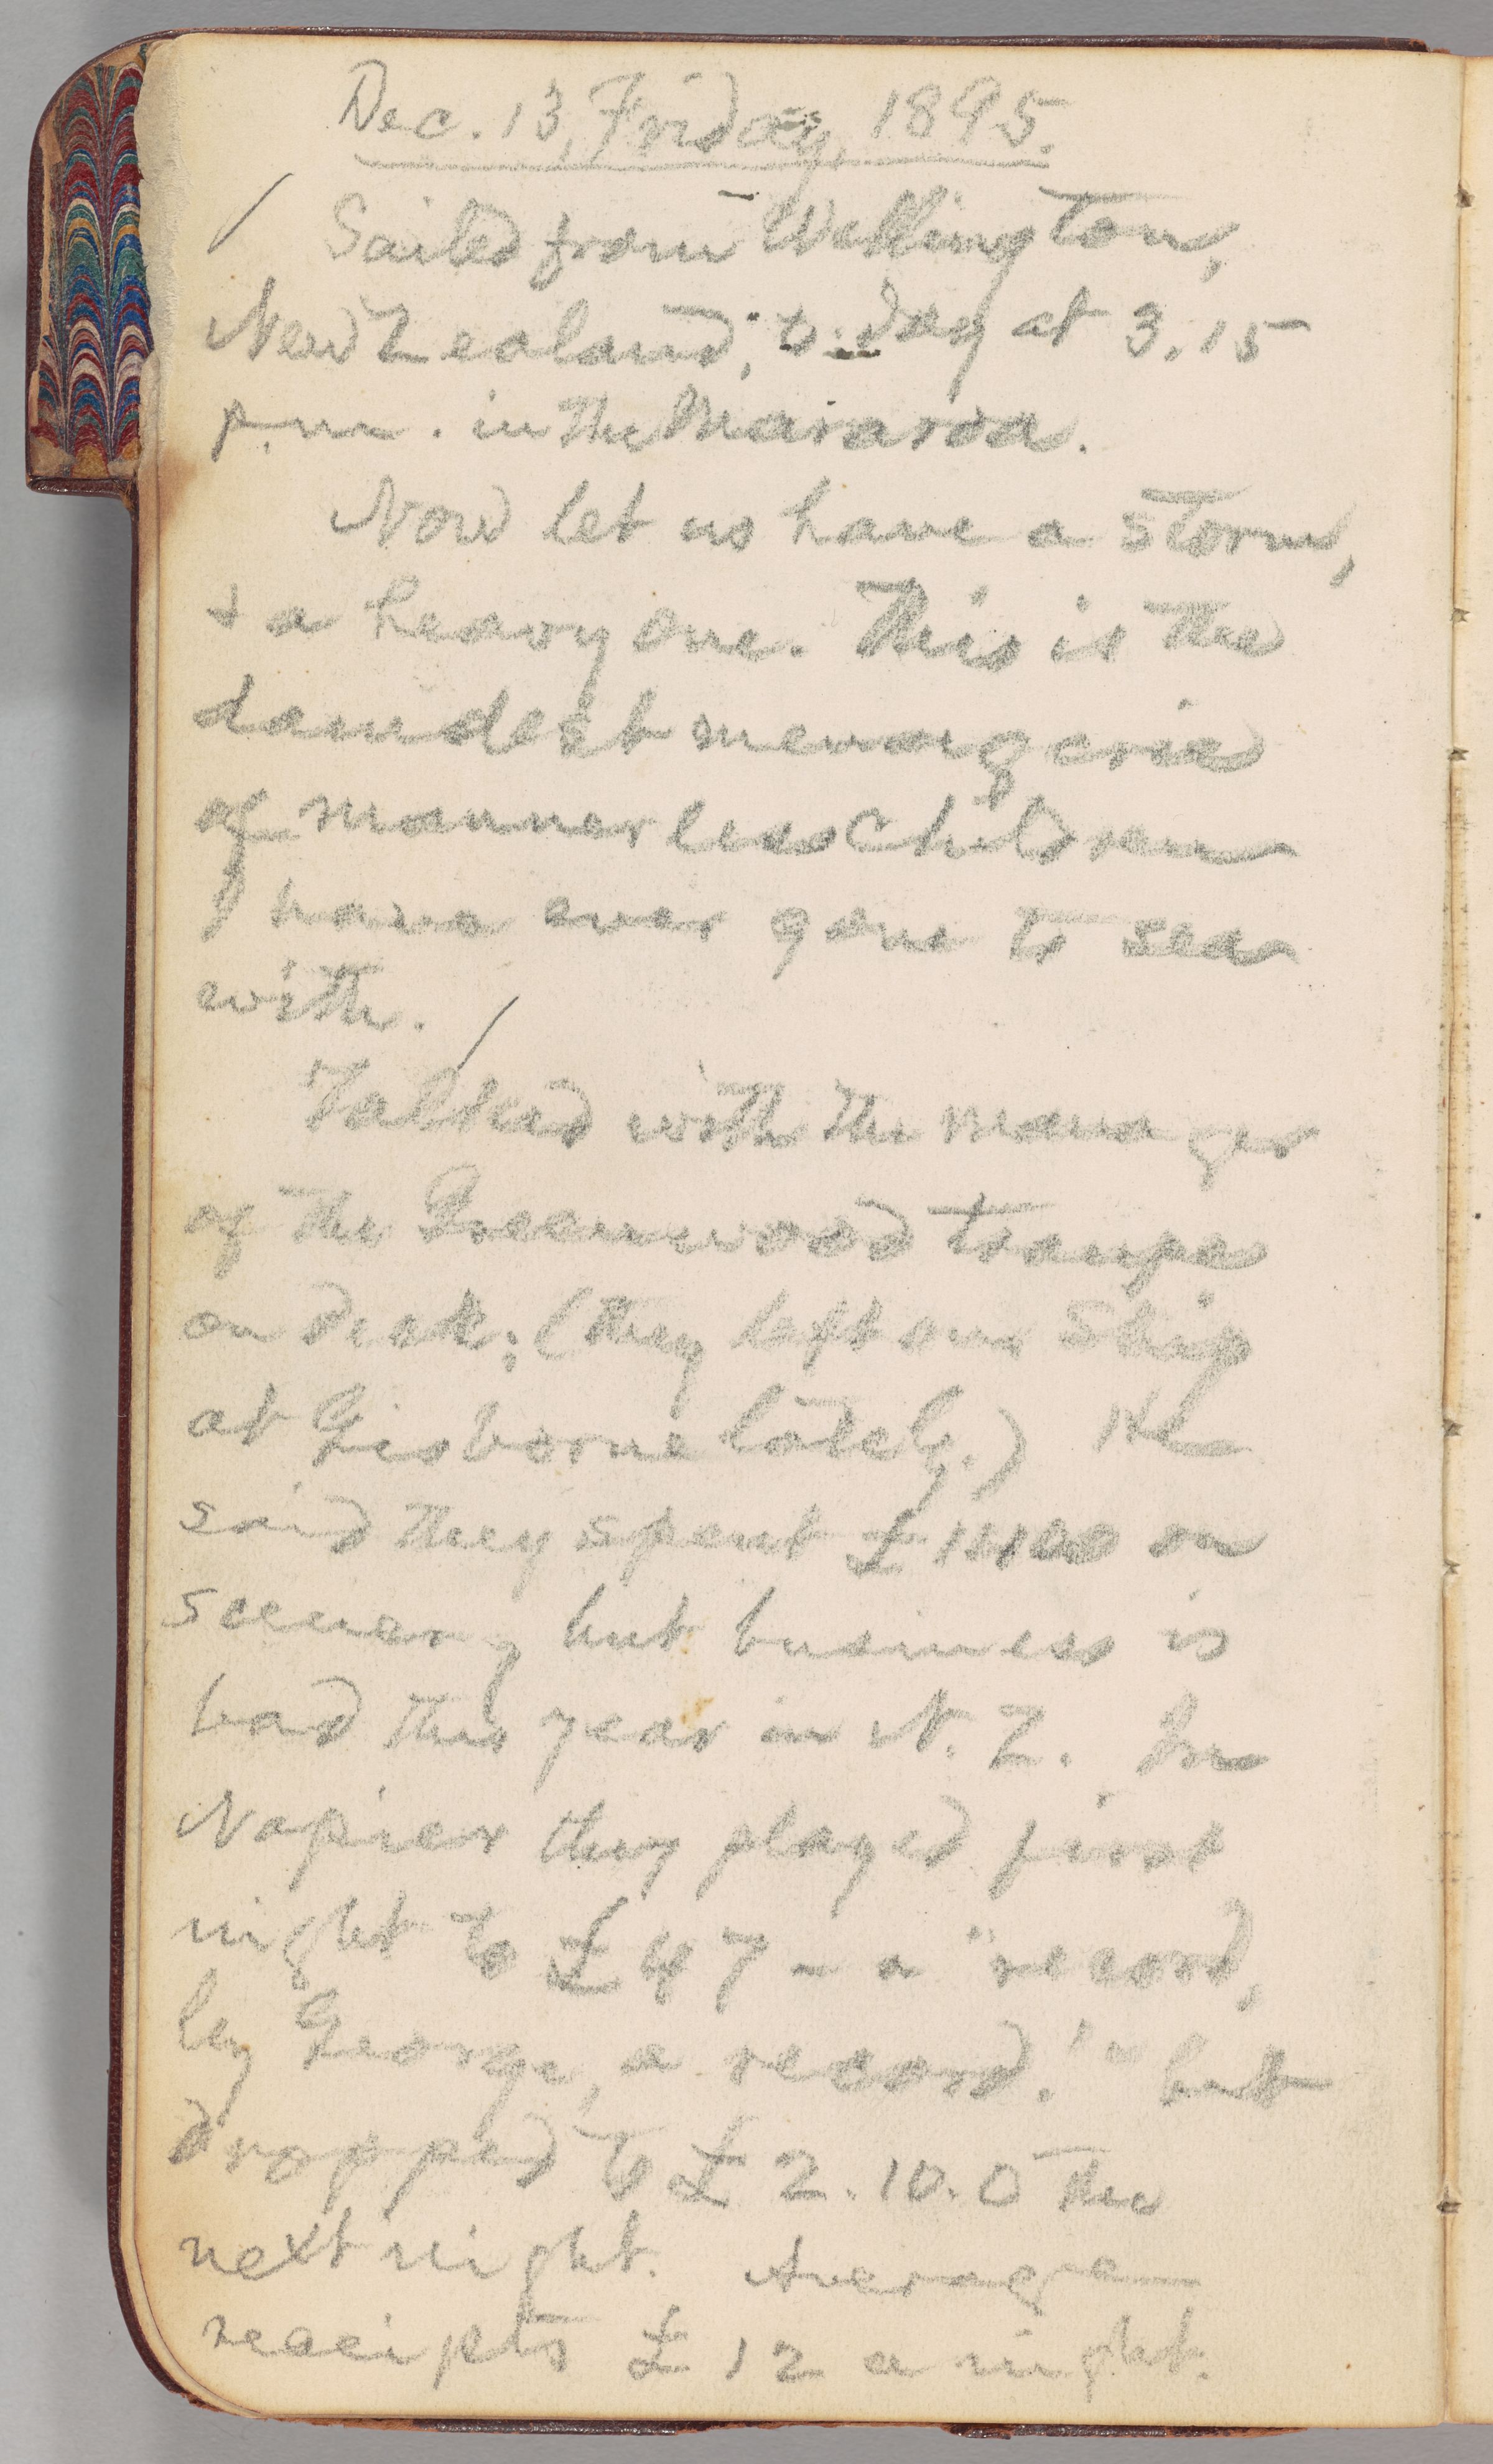 Dec. 13, Friday, 1895.
Sailed from Wellington,
New Zealand, to-day at 3.15
p.m. in the Mararoa.
Now let us have a storm,
& a heavy one. This is the
damdest menagerie
of mannerless children
I have ever gone to sea
with.
Talked with the manager
of the Greenwood troupe
on deck; (they left our ship
at Gisborne lately.) He
said they spent £1400 on
scenery but business is
bad this year in N. Z. In
Napier they played first
night to £47 – a "record,
by George, a record!" but
dropped to £2.10.0 the
next night. Average
receipts £12 a night.